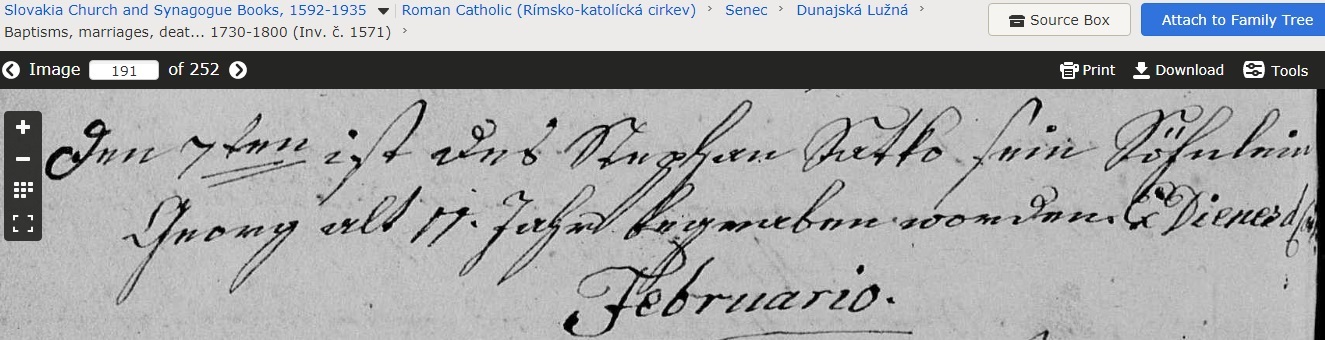 Slovakia Church and Synagogue Books, 1592-1935 Roman Catholic (Rímsko-katolícká cirkev) Senec Dunajská Lužná
Baptisms, marriages, deat... 1730-1800 (Inv. č. 1571)
Source Box
Attach to Family Tree
Image 191 of 252
Print Download Tools
Den 7ten ist des Stephan sein Söhnlein
Georg alt Jahr begraben worden.
Februario.